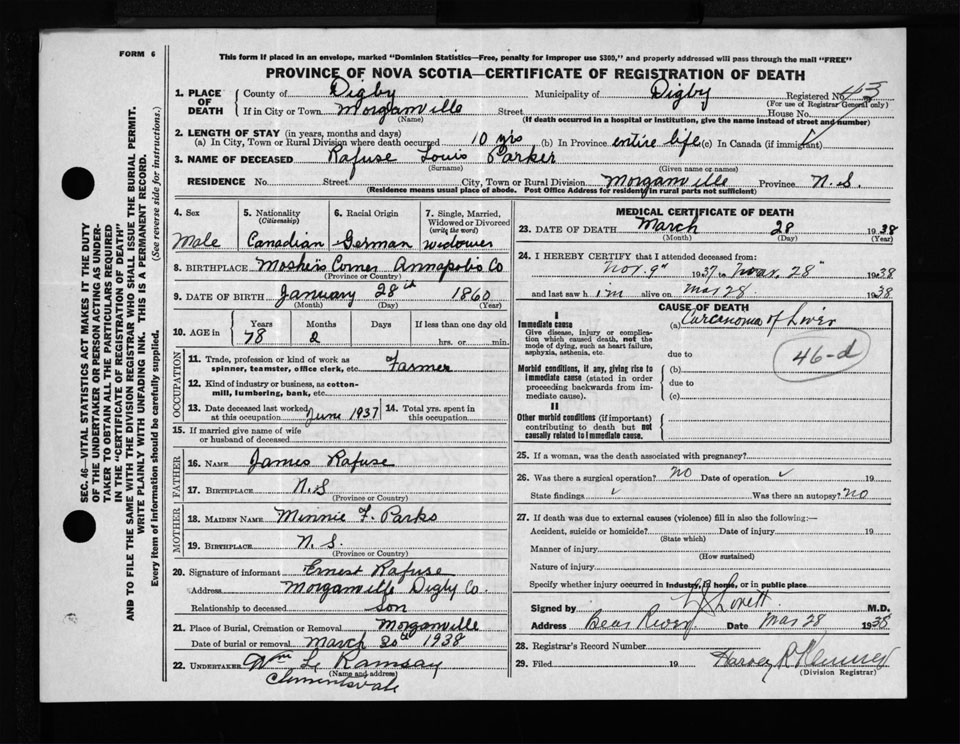 FORM 6
This form if placed in an envelope, marked "Dominion Statistics—Free, penalty for improper use $300," and properly addressed will pass through the mail "FREE"
PROVINCE OF NOVA SCOTIA—CERTIFICATE OF REGISTRATION OF DEATH
SEC. 46—VITAL STATISTICS ACT MAKES IT THE DUTY
OF THE UNDERTAKER OR PERSON ACTING AS UNDER-
TAKER TO OBTAIN ALL THE PARTICULARS REQUIRED
IN THE "CERTIFICATE OF REGISTRATION OF DEATH"
AND TO FILE THE SAME WITH THE DIVISION REGISTRAR WHO SHALL ISSUE THE BURIAL PERMIT.
WRITE PLAINLY WITH UNFADING INK. THIS IS A PERMANENT RECORD.
Every item of information should be carefully supplied. (See reverse side for instructions.)
1. PLACE OF DEATH County of Digby Municipality of Digby Registered No. 43
(For use of Registrar General only)
If in City or Town Morganville Street House No.
(Name) (If death occurred in a hospital or institution, give the name instead of street and number)
2. LENGTH OF STAY (in years, months and days)
(a) In City, Town or Rural Division where death occurred 10 yrs (b) In Province entire life (c) In Canada (if immigrant)
3. NAME OF DECEASED Rafuse Louis Parker
(Surname) (Given name or names)
RESIDENCE No. Street City, Town or Rural Division Morganville Province N.S.
(Residence means usual place of abode. Post Office Address for residents in rural parts not sufficient)
4. Sex Male
5. Nationality (Citizenship) Canadian
6. Racial Origin German
7. Single, Married, Widowed or Divorced (write the word) widower
8. BIRTHPLACE Moshers Corner Annapolis Co
(Province or Country)
9. DATE OF BIRTH January 28th 1860
(Month) (Day) (Year)
10. AGE in Years 78 Months 2 Days If less than one day old hrs. or min.
OCCUPATION
11. Trade, profession or kind of work as spinner, teamster, office clerk, etc. Farmer
12. Kind of industry or business, as cotton-mill, lumbering, bank, etc.
13. Date deceased last worked at this occupation June 1937 14. Total yrs. spent in this occupation
15. If married give name of wife or husband of deceased
FATHER
16. NAME James Rafuse
17. BIRTHPLACE N.S
(Province or Country)
MOTHER
18. MAIDEN NAME Minnie F. Parks
19. BIRTHPLACE N.S.
(Province or Country)
20. Signature of informant Ernest Rafuse
Address Morganville Digby Co.
Relationship to deceased Son
21. Place of Burial, Cremation or Removal Morganville
Date of burial or removal March 30th 1938
22. UNDERTAKER Wm L Ramsay
(Name and address)
Clementsvale
MEDICAL CERTIFICATE OF DEATH
23. DATE OF DEATH March 28 1938
(Month) (Day) (Year)
24. I HEREBY CERTIFY that I attended deceased from:
Nov. 9" 1937 to Mar. 28" 1938
and last saw him alive on Mar 28. 1938.
CAUSE OF DEATH
I
Immediate cause
Give disease, injury or complication which caused death, not the mode of dying, such as heart failure, asphyxia, asthenia, etc.
(a) Carcenoma of Liver
46-d
due to
Morbid conditions, if any, giving rise to immediate cause (stated in order proceeding backwards from immediate cause).
(b)
due to
(c)
II
Other morbid conditions (if important) contributing to death but not causally related to immediate cause.
25. If a woman, was the death associated with pregnancy?
26. Was there a surgical operation? no Date of operation 19
State findings Was there an autopsy? no
27. If death was due to external causes (violence) fill in also the following:—
Accident, suicide or homicide? Date of injury 19
(State which)
Manner of injury
(How sustained)
Nature of injury
Specify whether injury occurred in Industry, in home, or in public place
Signed by Lovett M.D.
Address Bear River Date Mar 28 1938
28. Registrar's Record Number
29. Filed 19 Harvey R
(Division Registrar)